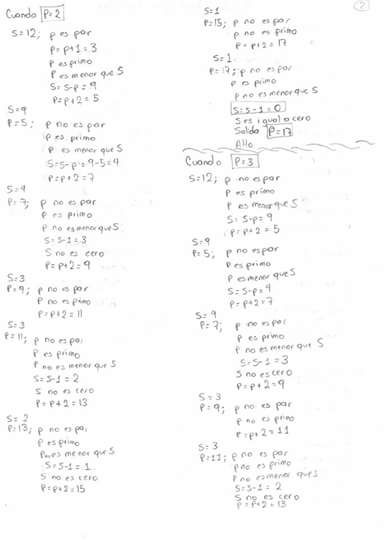 Cuando P=2
S=12; p es par
P=p+1=3
P es primo
P es menor que S
S=S-p=9
P=p+2=5
S=9
P=5; p no es par
p es primo
P es menor que S
S=S-p=9-5=4
P=p+2=7
S=4
P=7; p no es par
P es primo
P no es menor que S
S=S-1=3
S no es cero
P=p+2=9
S=3
P=9; p no es par
P no es primo
P=p+2=11
S=3
P=11; p no es par
P es primo
P no es menor que S
S=S-1=2
S no es cero
P=p+2=13
S=2
P=13; p no es par
P es primo
P es menor que S
S=S-1=1
S no es cero
P=p+2=15
2
S=1
P=15; p no es par
p no es primo
P=p+2=17
S=1
P=17; p no es par
p es primo
p no es menor que S
S=S-1=0
S es igual a cero
Salida P=17
Alto
Cuando P=3
S=12; p no es par
P es primo
P es menor que S
S=S-p=9
P=p+2=5
S=9
P=5; p no es par
P es primo
P es menor que S
S=S-p=4
P=p+2=7
S=4
P=7; p no es par
P es primo
P no es menor que S
S=S-1=3
S no es cero
P=p+2=9
S=3
P=9; p no es par
p no es primo
P=p+2=11
S=3
P=11; p no es par
P no es primo
P no es menor que S
S=S-1=2
S no es cero
P=p+2=13